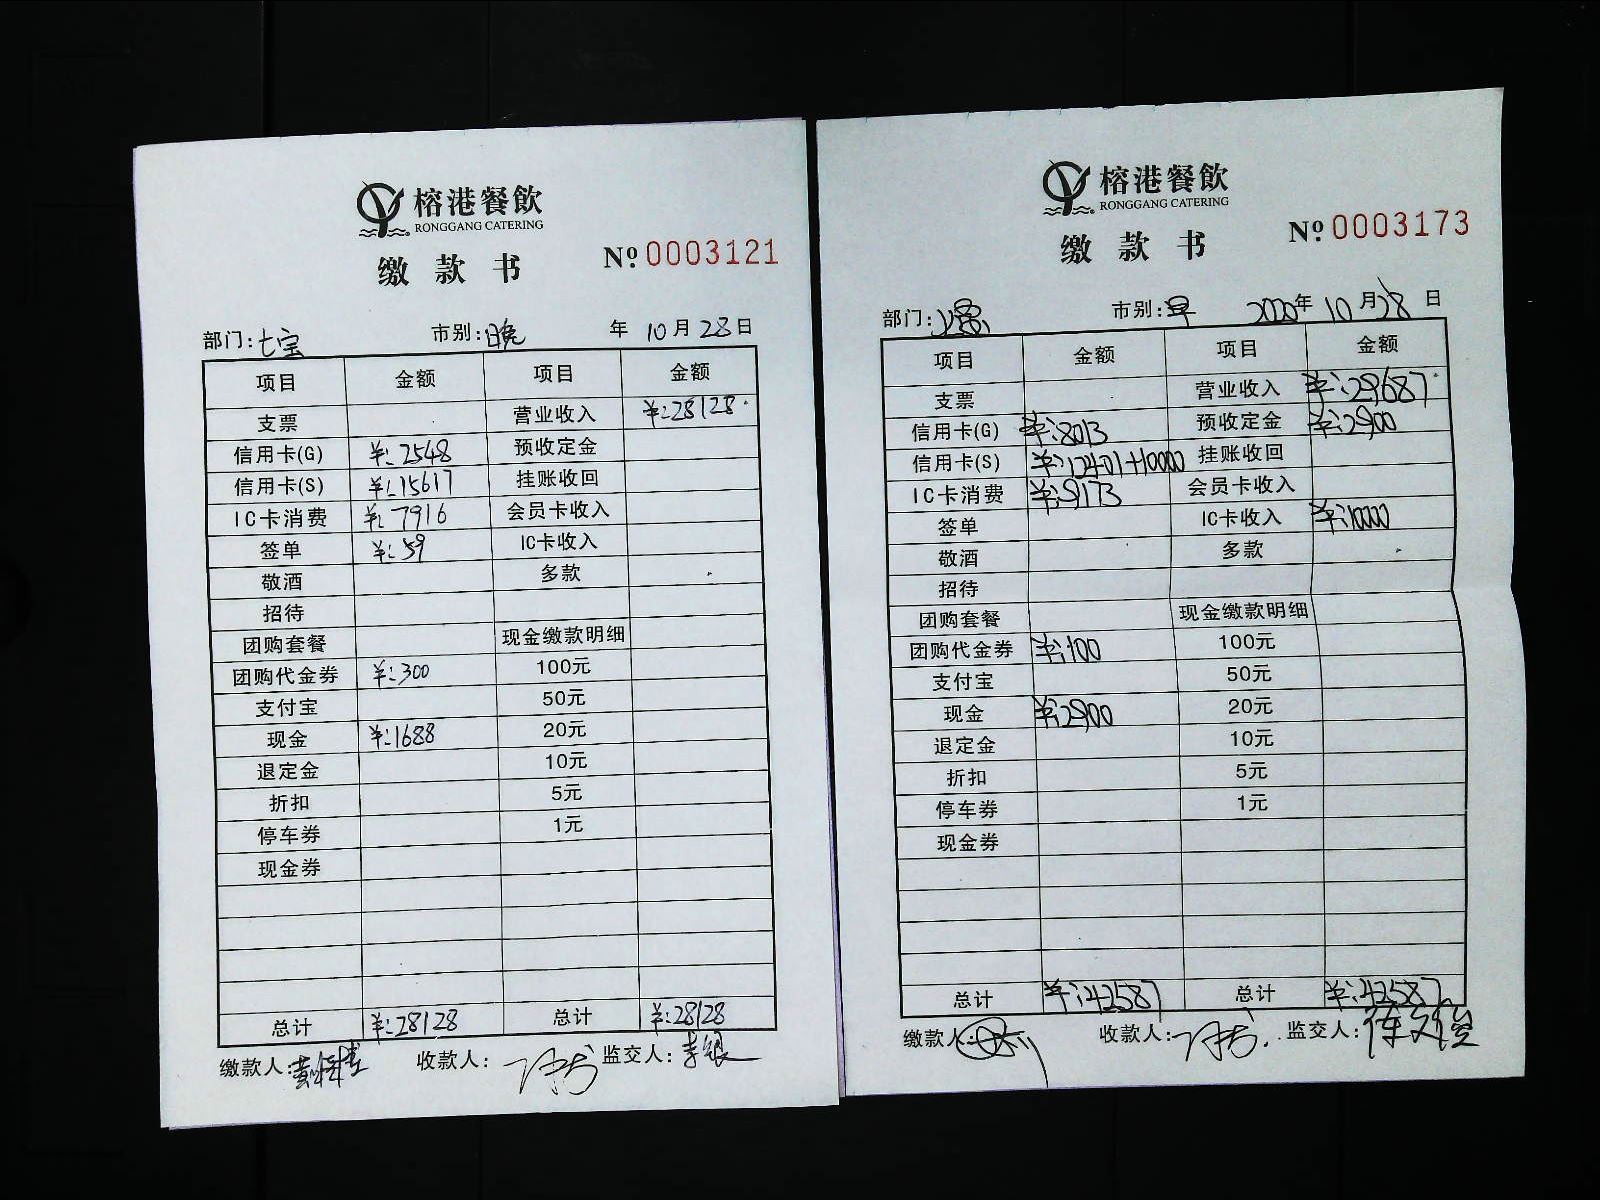 榕港餐飲
RONGGANG CATERING
缴款书
№ 0003121
部门:七宝 市别:晚 年 10月28日
项目 金额 项目 金额
支票 营业收入 ¥:28128
信用卡(G) ¥:2548 预收定金
信用卡(S) ¥:15617 挂账收回
IC卡消费 ¥:7916 会员卡收入
签单 ¥:59 IC卡收入
敬酒 多款
招待
团购套餐 现金缴款明细
团购代金券 ¥:300 100元
支付宝 50元
现金 ¥:1688 20元
退定金 10元
折扣 5元
停车券 1元
现金券
总计 ¥:28128 总计 ¥:28128
缴款人: 收款人: 监交人:李银
榕港餐飲
RONGGANG CATERING
缴款书
№ 0003173
部门: 市别:早 2020年10月28日
项目 金额 项目 金额
支票 营业收入 ¥:29687
信用卡(G) ¥:8013 预收定金 ¥:2900
信用卡(S) ¥:12401+10000 挂账收回
IC卡消费 ¥:9173 会员卡收入
签单 IC卡收入 ¥:10000
敬酒 多款
招待
团购套餐 现金缴款明细
团购代金券 ¥:100 100元
支付宝 50元
现金 ¥:2900 20元
退定金 10元
折扣 5元
停车券 1元
现金券
总计 ¥:42587 总计 ¥:42587
缴款人: 收款人: 监交人: